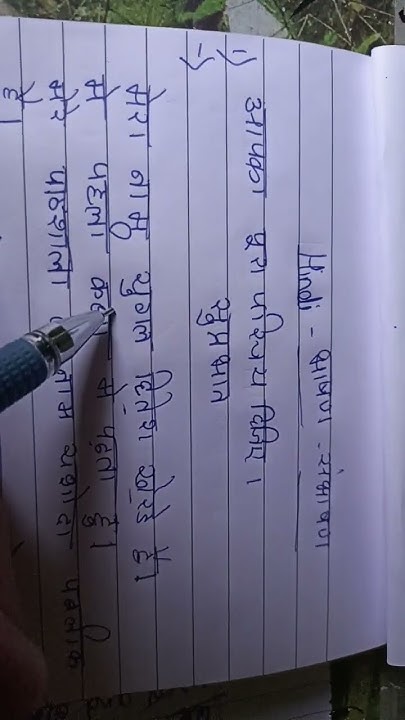 Hindi - भाषण - संभाषण
1) आपका पुरा परिचय दिजिए ।
→ सुप्रभात
मेरा नाम युगल हितेश है।
मे पहला मे पढ़ता हुं।
मेरे पाठशाला नाम यशोदा पब्लीक
है।